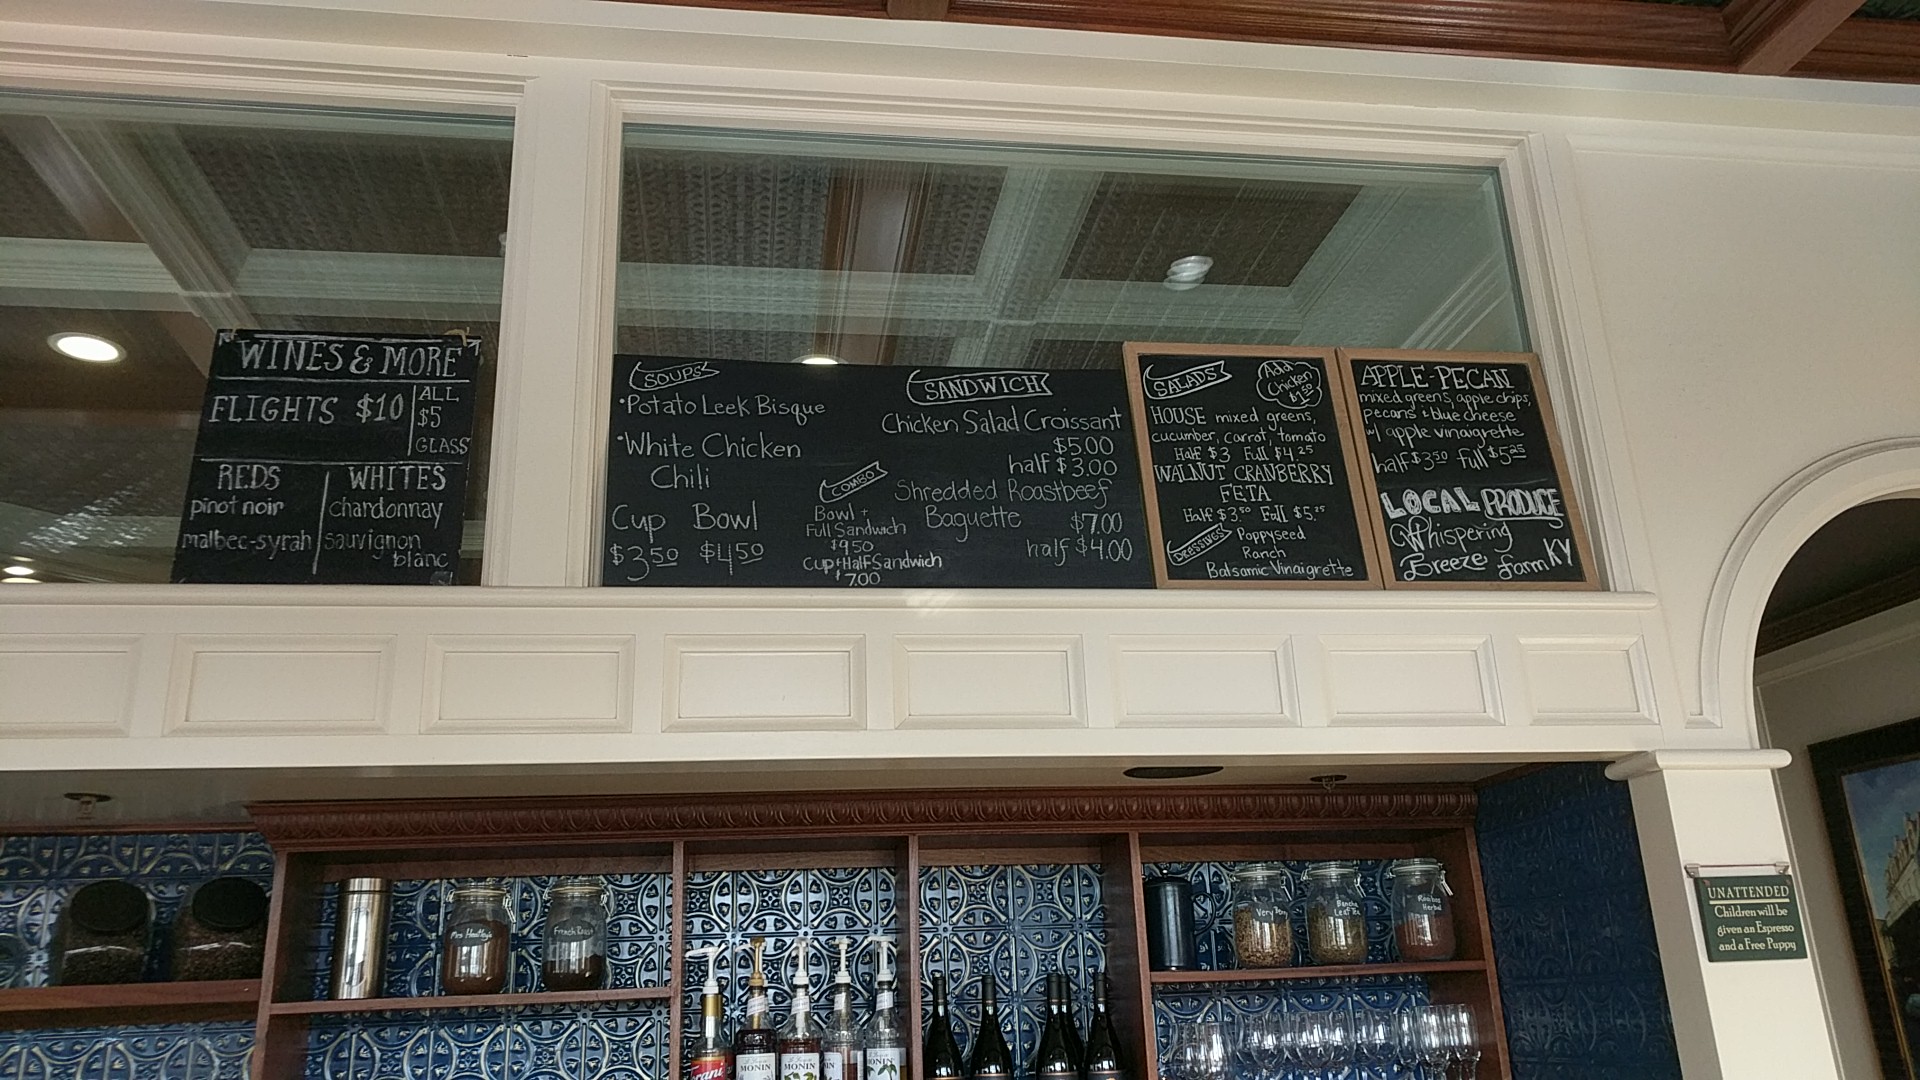 WINES & MORE
FLIGHTS $10
ALL
$5
GLASS
REDS
pinot noir
malbec-syrah
WHITES
chardonnay
sauvignon
blanc
SOUPS
•Potato Leek Bisque
•White Chicken
Chili
Cup Bowl
$3.50 $4.50
COMBO
Bowl +
Full Sandwich
$9.50
Cup + Half Sandwich
$7.00
SANDWICH
Chicken Salad Croissant
$5.00
half $3.00
Shredded Roastbeef
Baguette $7.00
half $4.00
SALADS
Add
Chicken
$1.50
HOUSE mixed greens,
cucumber, carrot, tomato
Half $3 Full $4.25
WALNUT CRANBERRY
FETA
Half $3.50 Full $5.25
DRESSINGS Poppyseed
Ranch
Balsamic Vinaigrette
APPLE-PECAN
mixed greens, apple chips,
pecans & blue cheese
w/ apple vinaigrette
half $3.50 full $5.25
LOCAL PRODUCE
Whispering
Breeze farm KY
UNATTENDED
Children will be
given an Espresso
and a Free Puppy
French Roast
Very Berry
MONIN
MONIN